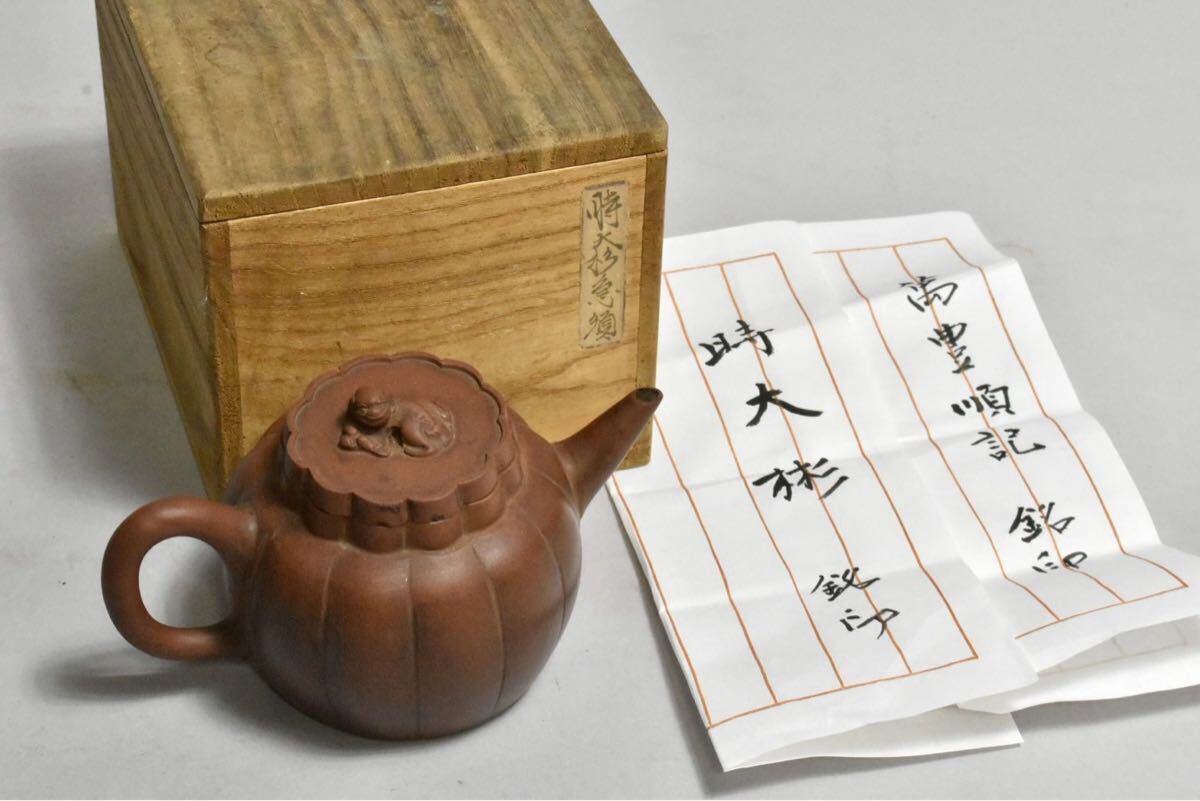 時大彬急須
萬豊順記 銘印
時大彬 銘印